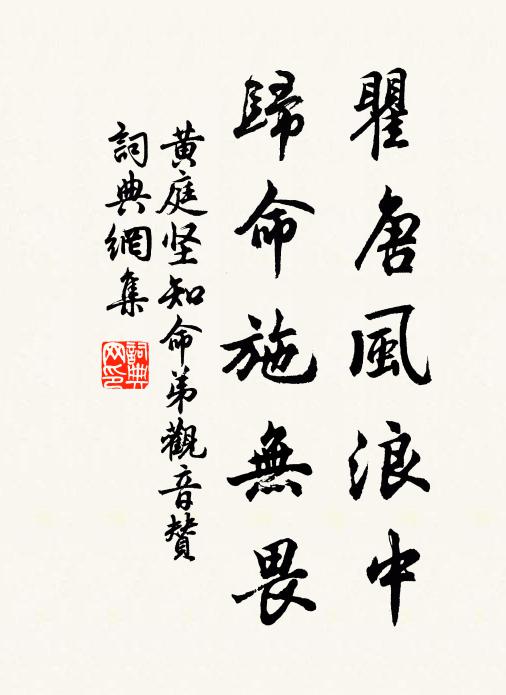 瞿唐風浪中
歸命施無畏
黄庭坚知命弟觀音贊
詞典網集
詞典网印